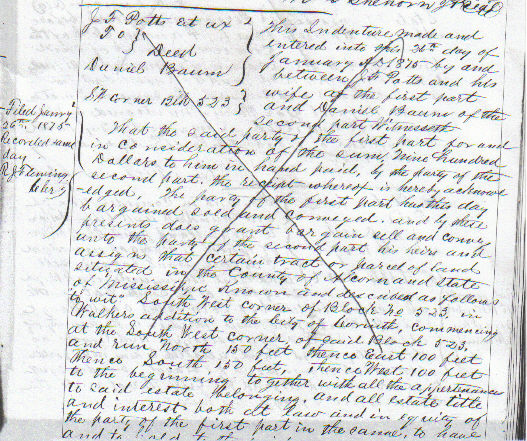 J F Potts et ux
To } Deed
Daniel Baum
S W corner Blk 523
Filed Janry
26th 1875
Recorded same
day
R J Fleming
This Indenture made and
entered into this 26th day of
January AD 1875 by and
between Potts and his
wife of the first part
and Daniel Baum of the
second part Witnesseth
That the said party of the first part for and
in consideration of the sum Nine hundred
Dollars to him in hand paid, by the party of the
second part. the receipt whereof is hereby acknowl
edged, The party of the first part has this day
bargained sold and conveyed. and by these
presents does grant bargain sell and convey
unto the party of the second part his heirs and
assigns that certain tract or parcel of land
situated in the County of Alcorn and State
of Mississippi Known and described as follows
"to wit" South West corner of Block No 523 in
Walkers addition to the City of Corinth, commencing
at the South West corner of said Block 523,
and run North 150 feet thence East 100 feet
thence South 150 feet, thence West 100 feet
to the beginning to gether with all the appertenances
to said estate belonging. and all estate title
and interest both at law and in equity of
the party of the first part in the same, to have